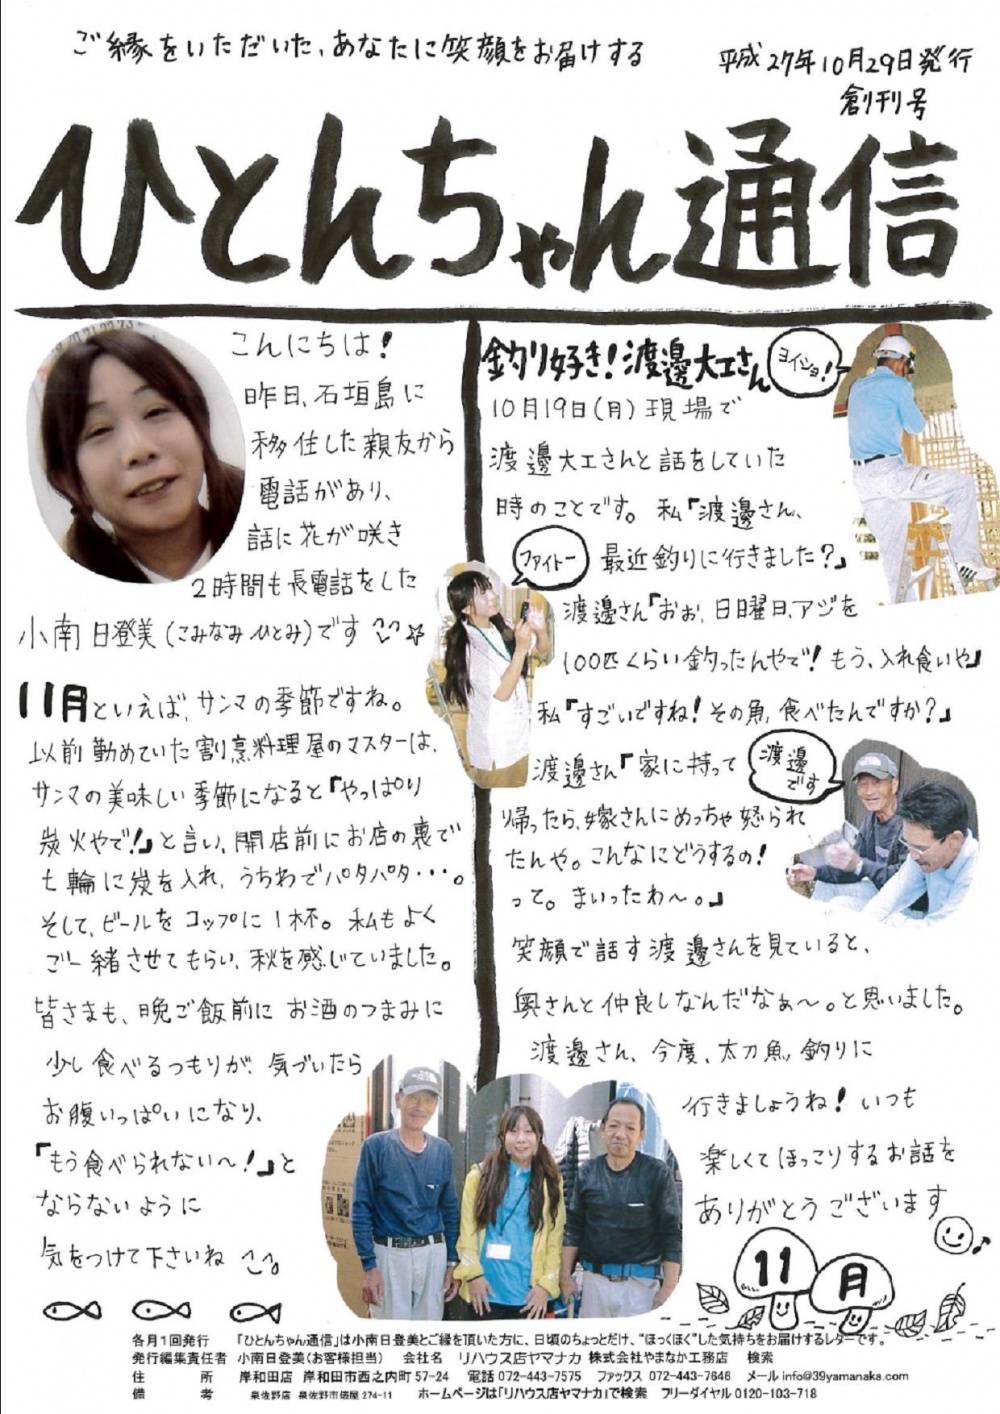 ご縁をいただいた、あなたに笑顔をお届けする
平成27年10月29日発行
創刊号
ひとんちゃん通信
こんにちは!
昨日、石垣島に
移住した親友から
電話があり、
話に花が咲き
2時間も長電話をした
小南日登美(こみなみひとみ)です
11月といえば、サンマの季節ですね。
以前勤めていた割烹料理屋のマスターは、
サンマの美味しい季節になると『やっぱり
炭火やで!』と言い、開店前にお店の裏で
七輪に炭を入れ、うちわでパタパタ・・・。
そして、ビールをコップに1杯。私もよく
ご一緒させてもらい、秋を感じていました。
皆さまも、晩ご飯前にお酒のつまみに
少し食べるつもりが、気づいたら
お腹いっぱいになり、
『もう食べられない〜!』と
ならないように
気をつけて下さいね
釣り好き!渡邊大工さん
ヨイショ!
10月19日(月)現場で
渡邊大工さんと話をしていた
時のことです。私『渡邊さん、
ファイトー
最近釣りに行きました?』
渡邊さん『おぉ、日曜日、アジを
100匹くらい釣ったんやで!もう、入れ食いや』
私『すごいですね!その魚、食べたんですか?』
渡邊さん『家に持って
渡邊
です
帰ったら、嫁さんにめっちゃ怒られ
たんや。こんなにどうするの!
って。まいったわ〜。』
笑顔で話す渡邊さんを見ていると、
奥さんと仲良しなんだなぁ〜。と思いました。
渡邊さん、今度、太刀魚釣りに
行きましょうね!いつも
楽しくてほっこりするお話を
ありがとうございます
11月
各月1回発行 「ひとんちゃん通信」は小南日登美とご縁を頂いた方に、日頃のちょっとだけ、“ほっくほく”した気持ちをお届けするレターです。
発行編集責任者 小南日登美(お客様担当) 会社名 リハウス店ヤマナカ 株式会社やまなか工務店 検索
住所 岸和田店 岸和田市西之内町57-24 電話 072-443-7575 ファックス 072-443-7646 メール info@39yamanaka.com
備考 泉佐野店 泉佐野市俵屋274-11 ホームページは「リハウス店ヤマナカ」で検索 フリーダイヤル 0120-103-718